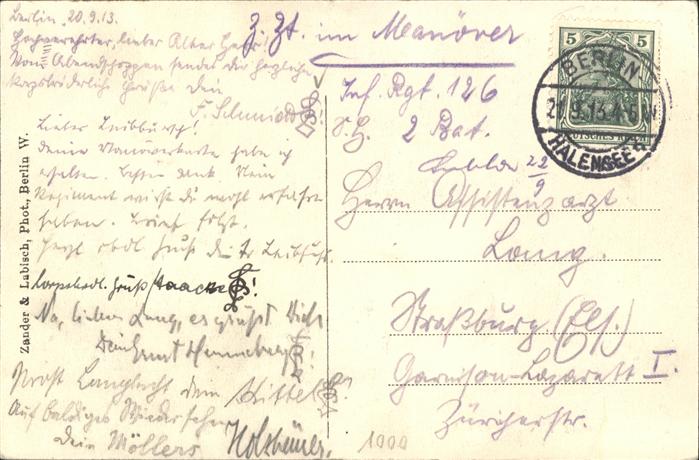 Berlin, 20.9.13.
Hochverehrter, lieber Alter Herr!
Vom Abendschoppen sendet dir herzliche
korpsbrüderliche Grüße dein
F. Schmidt
Lieber Leibbursch!
deine Manöverkarte habe ich
erhalten. Besten Dank. Mein
Regiment wirst du wohl erfahren
haben. Brief folgt.
Herzl. Gruß dein tr. Leibfuchs
Corpsbrdl. Gruß Haacke
Na, lieber Lang, es grüßt Dich
Dein Ernst Henneberg
Prost Langbecht dein Kittel
Auf baldiges Wiedersehen
Dein Möllers
Holzhäuer.
Zander & Labisch, Phot., Berlin W.
z. Zt. im Manöver
Inf. Rgt. 126
2 Bat.
22/9
Herrn Assistenzarzt
Lang.
Straßburg (Els.)
Garnison-Lazarett I.
Züricherstr.
1000
5 5
DEUTSCHES REICH
BERLIN
9.13.
HALENSEE